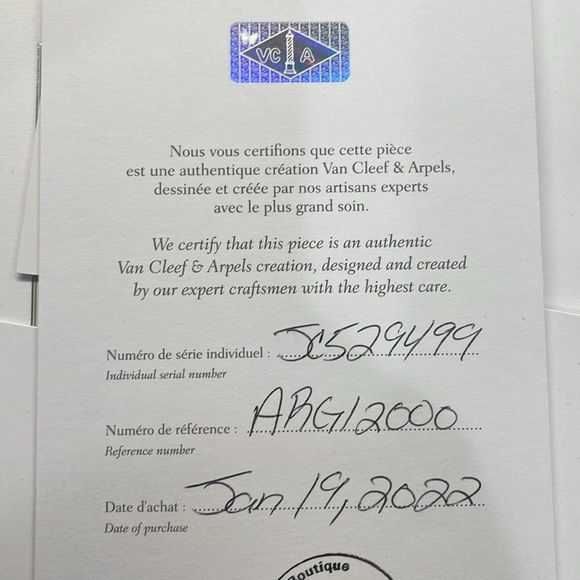 VC A
Nous vous certifions que cette pièce
est une authentique création Van Cleef & Arpels,
dessinée et créée par nos artisans experts
avec le plus grand soin.
We certify that this piece is an authentic
Van Cleef & Arpels creation, designed and created
by our expert craftsmen with the highest care.
Numéro de série individuel : JC529499
Individual serial number
Numéro de référence : ARG12000
Reference number
Date d'achat : Jan 19, 2022
Date of purchase
Boutique